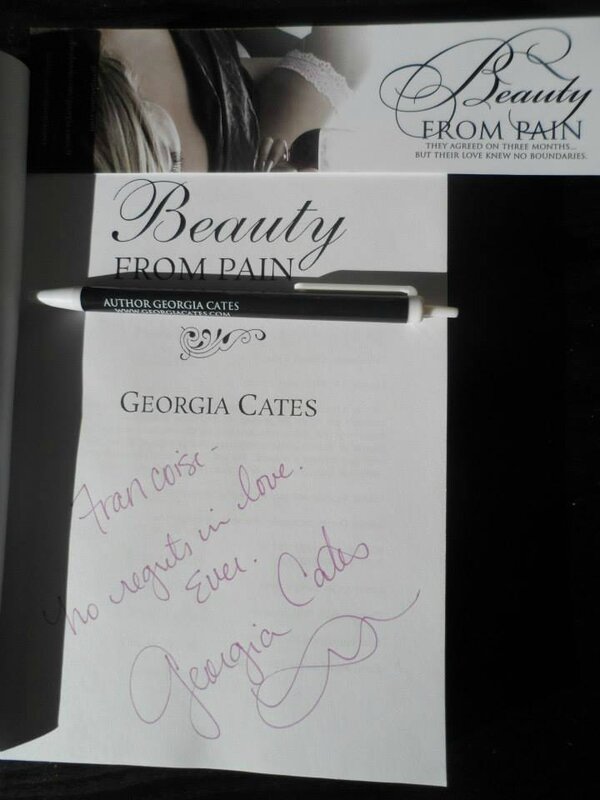 Beauty
FROM PAIN
THEY AGREED ON THREE MONTHS...
BUT THEIR LOVE KNEW NO BOUNDARIES.
Beauty
FROM PAIN
AUTHOR GEORGIA CATES
WWW.GEORGIACATES.COM
GEORGIA CATES
Francoise-
No regrets in love.
Ever.
Georgia Cates